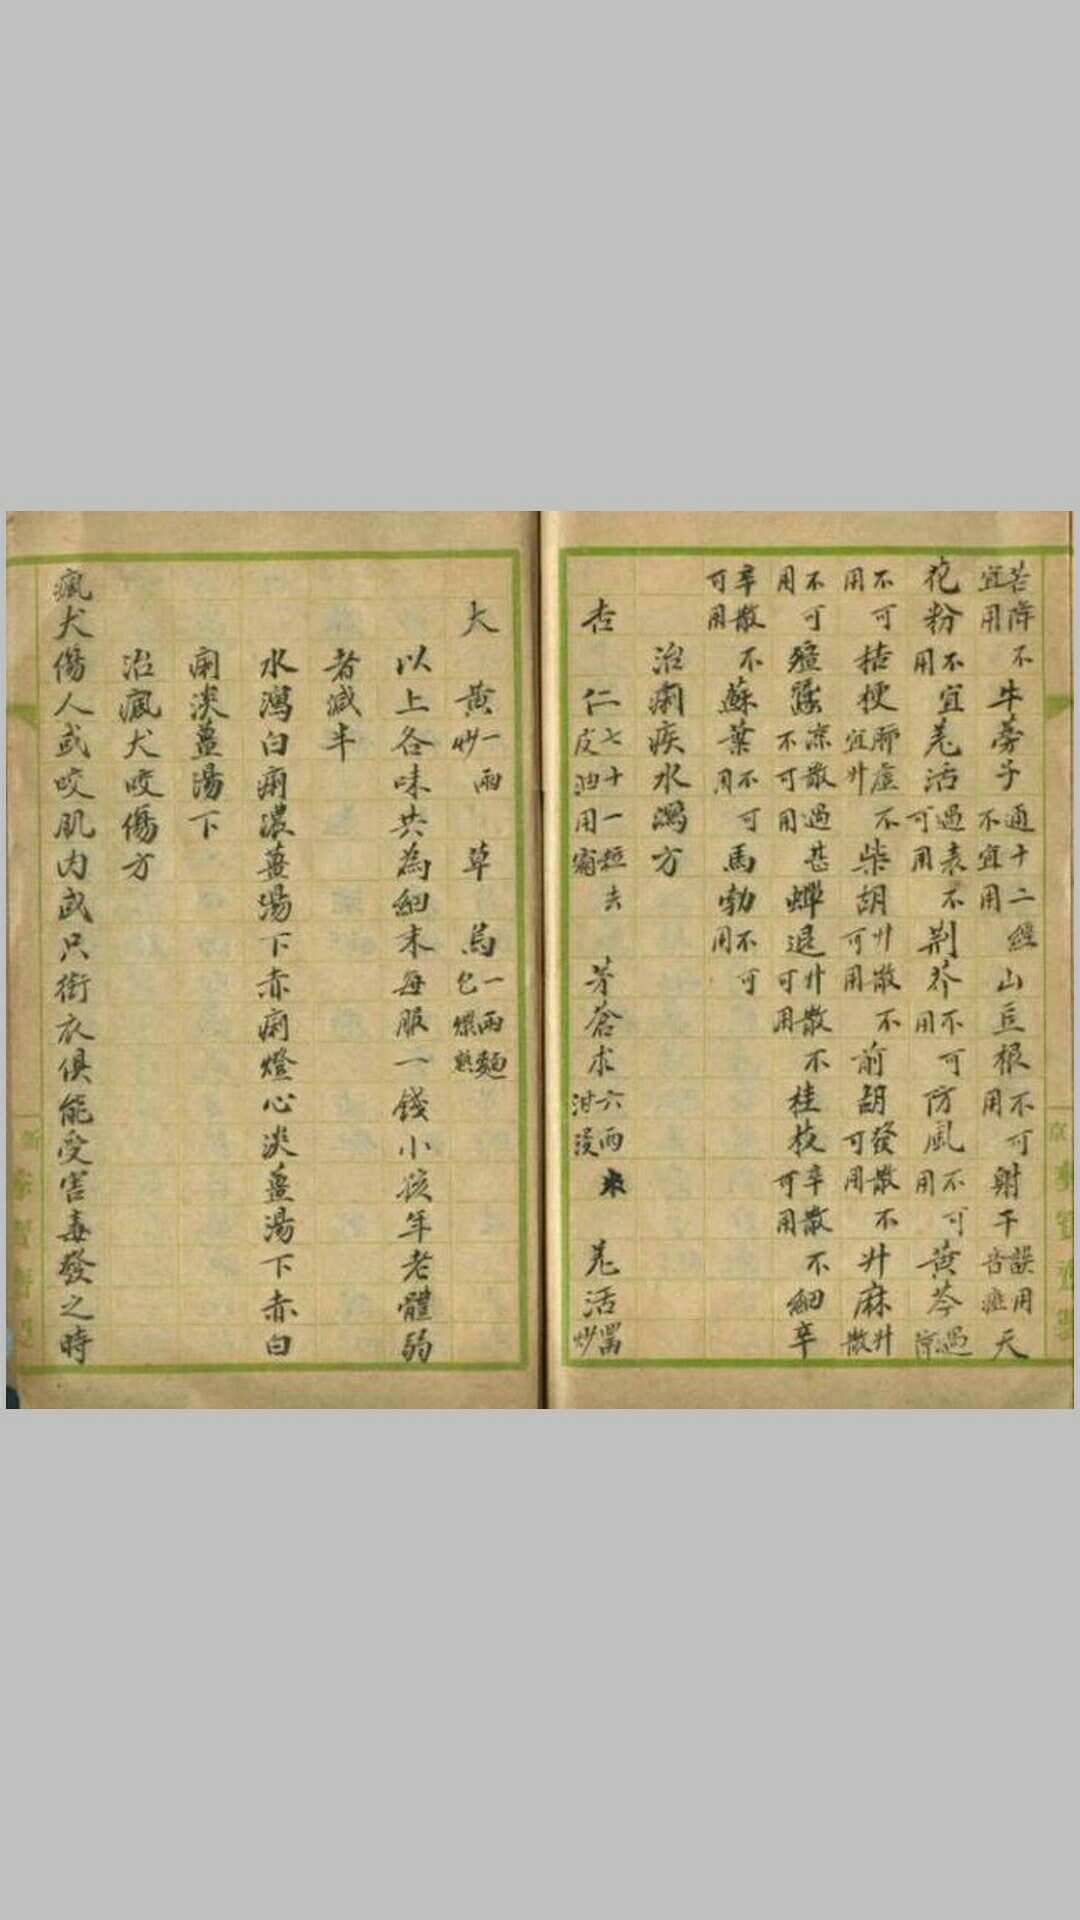 苦降不宜用牛蒡子通十二經不宜用山豆根不可用射干誤用音瘂天
花粉不宜用羌活過表不可用荆芥不可用防風不可用黄芩過涼
不可用桔梗肺虛不宜升柴胡升散不可用前胡發散不可用升麻升散
不可用殭蚕涼散過甚不可用蟬退升散不可用桂枝辛散不可用細辛
辛散不可用蘇葉不可用馬勃不可用
治痢疾水瀉方
杏仁七十一粒去皮油用霜茅蒼朮六兩泔浸羌活炒
大黄一兩炒草烏一兩麵包煨熟
以上各味共為細末每服一錢小孩年老體弱
者減半
水瀉白痢濃薑湯下赤痢燈心淡薑湯下赤白
痢淡薑湯下
治瘋犬咬傷方
瘋犬傷人或咬肌肉或只銜衣俱能受害毒發之時